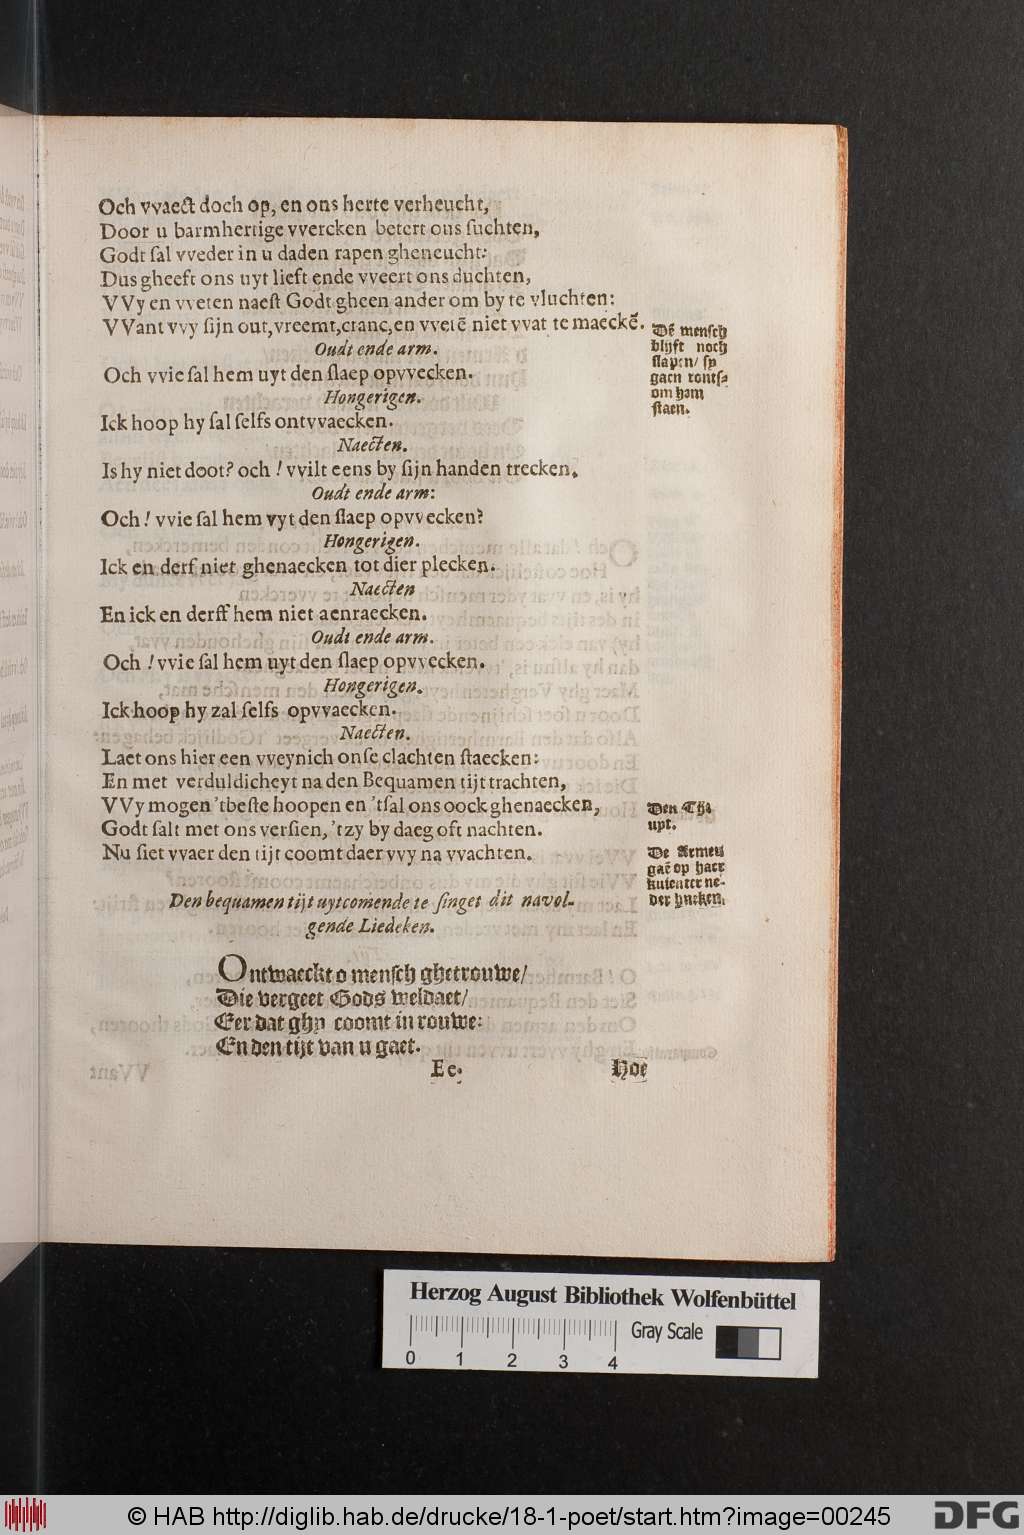 Och vvaect doch op, en ons herte verheucht,
Door u barmhertige vvercken betert ons suchten,
Godt sal vveder in u daden rapen gheneucht:
Dus gheeft ons uyt lieft ende vveert ons duchten,
VVy en vveten naest Godt gheen ander om by te vluchten:
VVant vvy sijn out, vreemt, cranc, en vvetē niet vvat te maeckē.
Dē mensch
blijft noch
slapen/ sy
gaen ronts-
om hem
staen.
Oudt ende arm.
Och vvie sal hem uyt den slaep opvvecken.
Hongerigen.
Ick hoop hy sal selfs ontvvaecken.
Naecten.
Is hy niet doot? och! vvilt eens by sijn handen trecken.
Oudt ende arm:
Och! vvie sal hem vyt den slaep opvvecken?
Hongerigen.
Ick en derf niet ghenaecken tot dier plecken.
Naecten
En ick en derff hem niet aenraecken.
Oudt ende arm.
Och! vvie sal hem uyt den slaep opvvecken.
Hongerigen.
Ick hoop hy zal selfs opvvaecken.
Naecten.
Laet ons hier een vveynich onse clachten staecken:
En met verduldicheyt na den Bequamen tijt trachten,
VVy mogen 'tbeste hoopen en 'tsal ons oock ghenaecken,
Godt salt met ons versien, 'tzy by daeg oft nachten.
Nu siet vvaer den tijt coomt daer vvy na vvachten.
Den Tijt
uyt.
De Armen
gaē op haer
knienter ne-
der hucken.
Den bequamen tijt uytcomende te singet dit navol-
gende Liedeken.
Ontwaeckt o mensch ghetrouwe/
Die vergeet Gods weldaet/
Eer dat ghy coomt in rouwe:
En den tijt van u gaet.
Ee.
Hoe
Herzog August Bibliothek Wolfenbüttel
Gray Scale
0 1 2 3 4
© HAB http://diglib.hab.de/drucke/18-1-poet/start.htm?image=00245
DFG